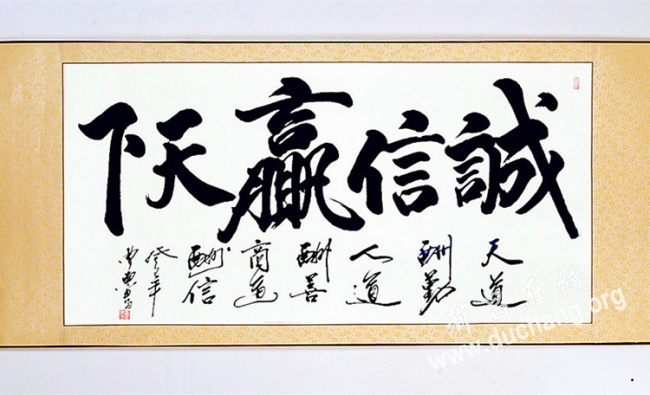 誠信贏天下
天道
酬勤
人道
酬善
商道
酬信
癸巳年
都昌在线
www.duchang.org